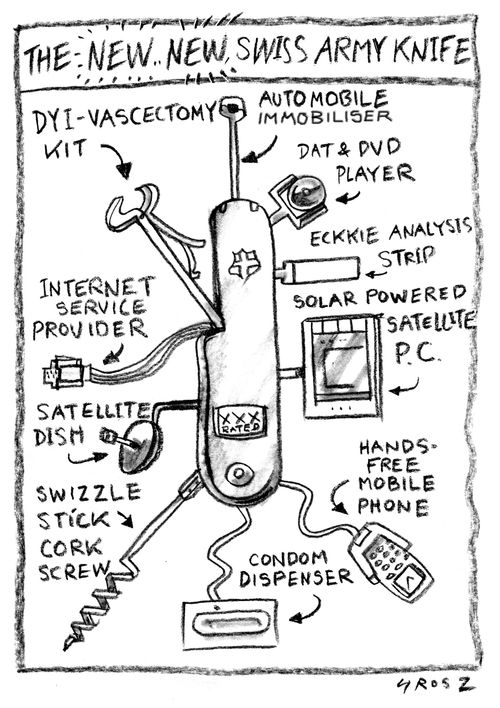 THE NEW.. NEW, SWISS ARMY KNIFE
DYI-VASCECTOMY
KIT
AUTOMOBILE
IMMOBILISER
DAT & DVD
PLAYER
ECKKIE ANALYSIS
STRIP
INTERNET
SERVICE
PROVIDER
SOLAR POWERED
SATELLITE
P.C.
SATELLITE
DISH
XXX
RATED
HANDS-
FREE
MOBILE
PHONE
SWIZZLE
STICK
CORK
SCREW
CONDOM
DISPENSER
GROSZ